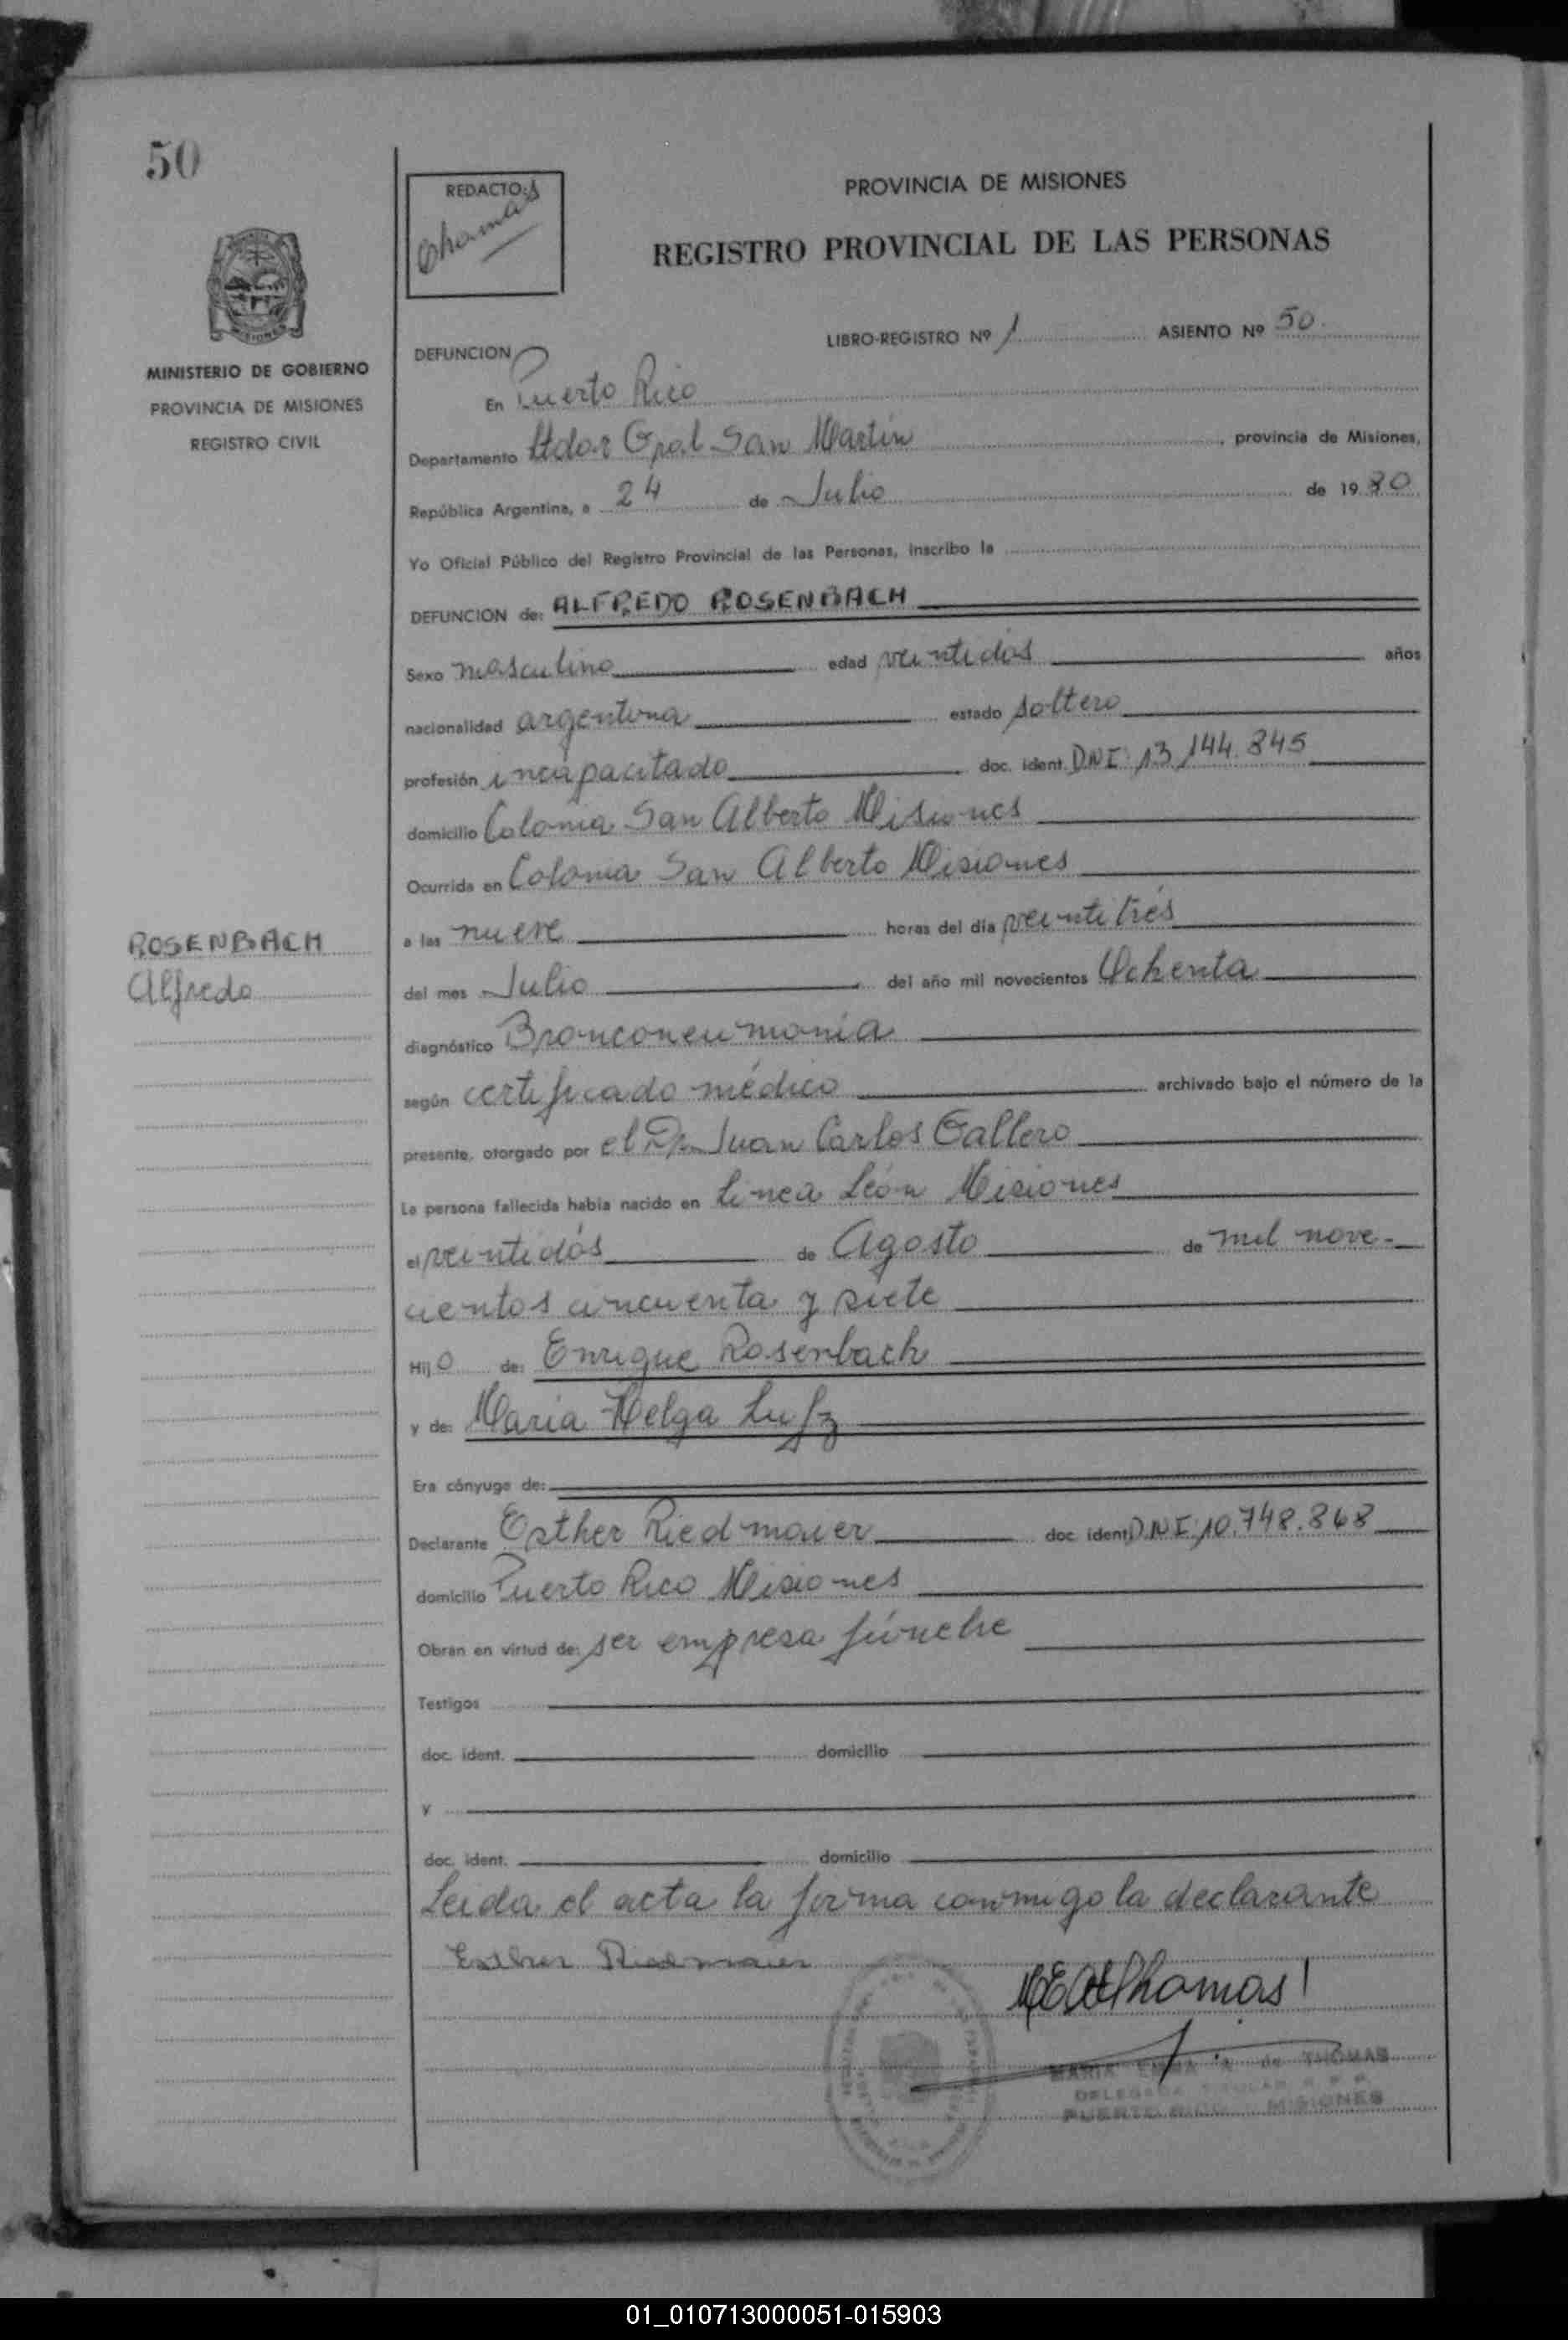 50
REDACTO:
Thomas
PROVINCIA DE MISIONES
REGISTRO PROVINCIAL DE LAS PERSONAS
MISIONES
MINISTERIO DE GOBIERNO
PROVINCIA DE MISIONES
REGISTRO CIVIL
LIBRO-REGISTRO Nº 1 ASIENTO Nº 50.
DEFUNCION
En Puerto Rico
Departamento Ltdor Gral San Martín, provincia de Misiones,
República Argentina, a 24 de Julio de 1980
Yo Oficial Público del Registro Provincial de las Personas, inscribo la
DEFUNCION de: ALFREDO ROSENBACH
Sexo masculino edad veintidós años
nacionalidad argentina estado soltero
profesión incapacitado doc. ident. DNI: 13.144.845
domicilio Colonia San Alberto Misiones
Ocurrida en Colonia San Alberto Misiones
a las nueve horas del día veintitrés
ROSENBACH
Alfredo
del mes Julio del año mil novecientos Ochenta
diagnóstico Bronconeumonía
según certificado médico archivado bajo el número de la
presente, otorgado por el Dr. Juan Carlos Gallero
La persona fallecida había nacido en Línea León Misiones
el veintidós de Agosto de mil nove-
cientos cincuenta y siete
Hijo de: Enrique Rosenbach
y de: María Helga
Era cónyuge de:
Declarante Esther Riedmaier doc. ident. DNI: 10.748.868
domicilio Puerto Rico Misiones
Obran en virtud de: ser empresa fúnebre
Testigos
doc. ident. domicilio
y
doc. ident. domicilio
Leida el acta la firma conmigo la declarante
Esther Riedmaier
Thomas
MARIA EMMA A. de THOMAS
DELEGADA TITULAR R P P
PUERTO RICO - MISIONES
01_010713000051-015903